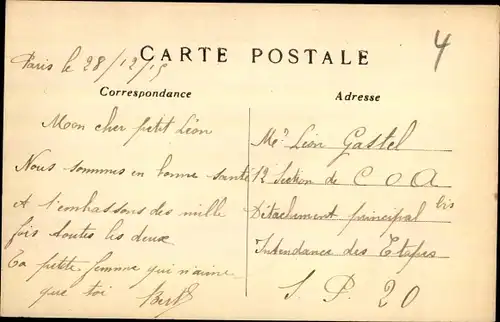 4
Paris le 28/12/15
CARTE POSTALE
Correspondance
Adresse
Mon cher petit Léon
Nous sommes en bonne santé
et t'embrassons des mille
fois toutes les deux
Ta petite femme qui n'aime
que toi
Mr Léon Gastel
12 Section de C O A
Détachement principal bis
Intendance des Etapes
S. P. 20